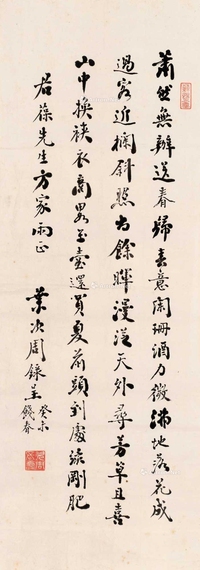 蕭然無辦送春歸春意闌珊酒力微沸地落花成
過客近欄斜照尚餘暉漫從天外尋芳草且喜
山中換裌衣商畧玉壺還買夏前頭到處綠剛肥
君葆先生方家兩正
葉次周錄呈
癸未
餞春